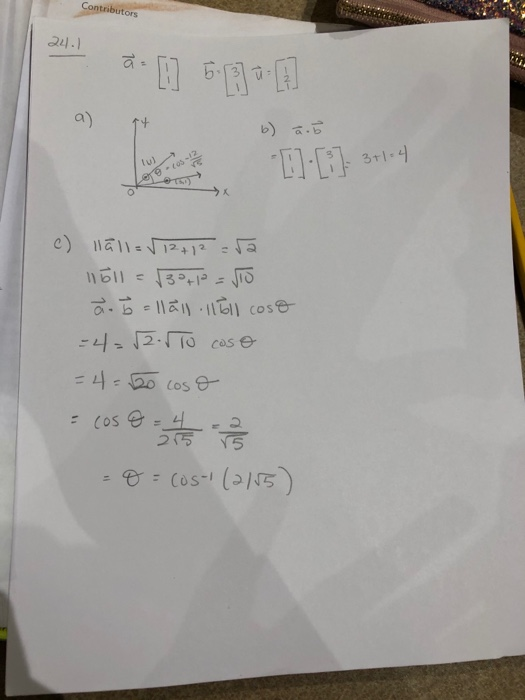 Contributors
24.1
a⃗ = [1 1] b⃗ = [3 1] u⃗ = [1 2 1]
a)
y
(1,1) θ = cos⁻¹ 2/√5
(3,1)
0 x
b) a⃗ · b⃗
= [1 1] · [3 1] = 3+1=4
c) ||a⃗|| = √1²+1² = √2
||b⃗|| = √3²+1² = √10
a⃗ · b⃗ = ||a⃗|| · ||b⃗|| cos θ
= 4 = √2 · √10 cos θ
= 4 = √20 cos θ
= cos θ = 4/2√5 = 2/√5
= θ = cos⁻¹ (2/√5)